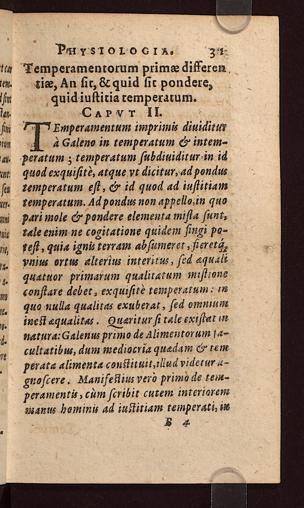 PHYSIOLOGIA. 31
Temperamentorum primæ differen
tiæ, An sit, & quid sit pondere,
quid iustitia temperatum.
CAPVT II.
TEmperamentum imprimis diuiditur
à Galeno in temperatum & intem-
peratum; temperatum subdiuiditur in id
quod exquisitè, atque vt dicitur, ad pondus
temperatum est, & id quod ad iustitiam
temperatum. Ad pondus non appello, in quo
pari mole & pondere elementa mista sunt,
tale enim ne cogitatione quidem fingi po-
test, quia ignis terram absumeret, fieretq́;
vnius ortus alterius interitus, sed æquali
quatuor primarum qualitatum mistione
constare debet, exquisitè temperatum: in
quo nulla qualitas exuberat, sed omnium
inest æqualitas. Quæritur si tale existat in
natura: Galenus primo de Alimentorum fa-
cultatibus, dum mediocria quædam & tem
perata alimenta constituit, illud videtur a-
gnoscere. Manifestius verò primo de tem-
peramentis, cùm scribit cutem interiorem
manus hominis ad iustitiam temperati, in
B 4